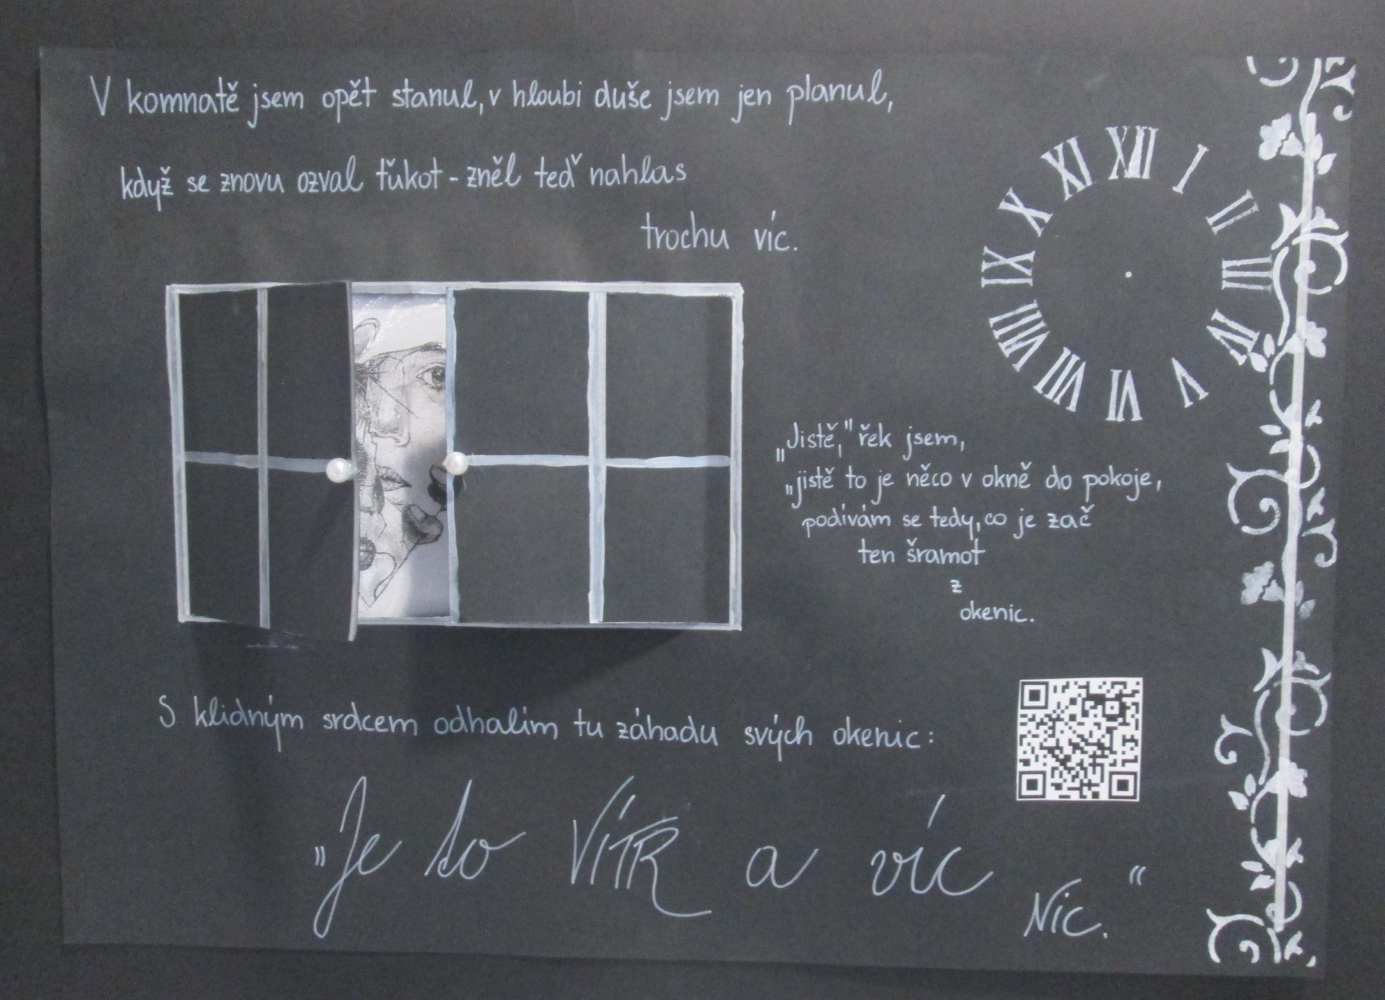 V komnatě jsem opět stanul, v hloubi duše jsem jen planul,
když se znovu ozval ťukot - zněl teď nahlas
trochu víc.
XII
I
II
III
IV
V
VI
VII
VIII
IX
X
XI
„Jistě,“ řek jsem,
„jistě to je něco v okně do pokoje,
podívám se tedy, co je zač
ten šramot
z
okenic.
S klidným srdcem odhalím tu záhadu svých okenic:
„Je to VÍTR a víc
Nic.“